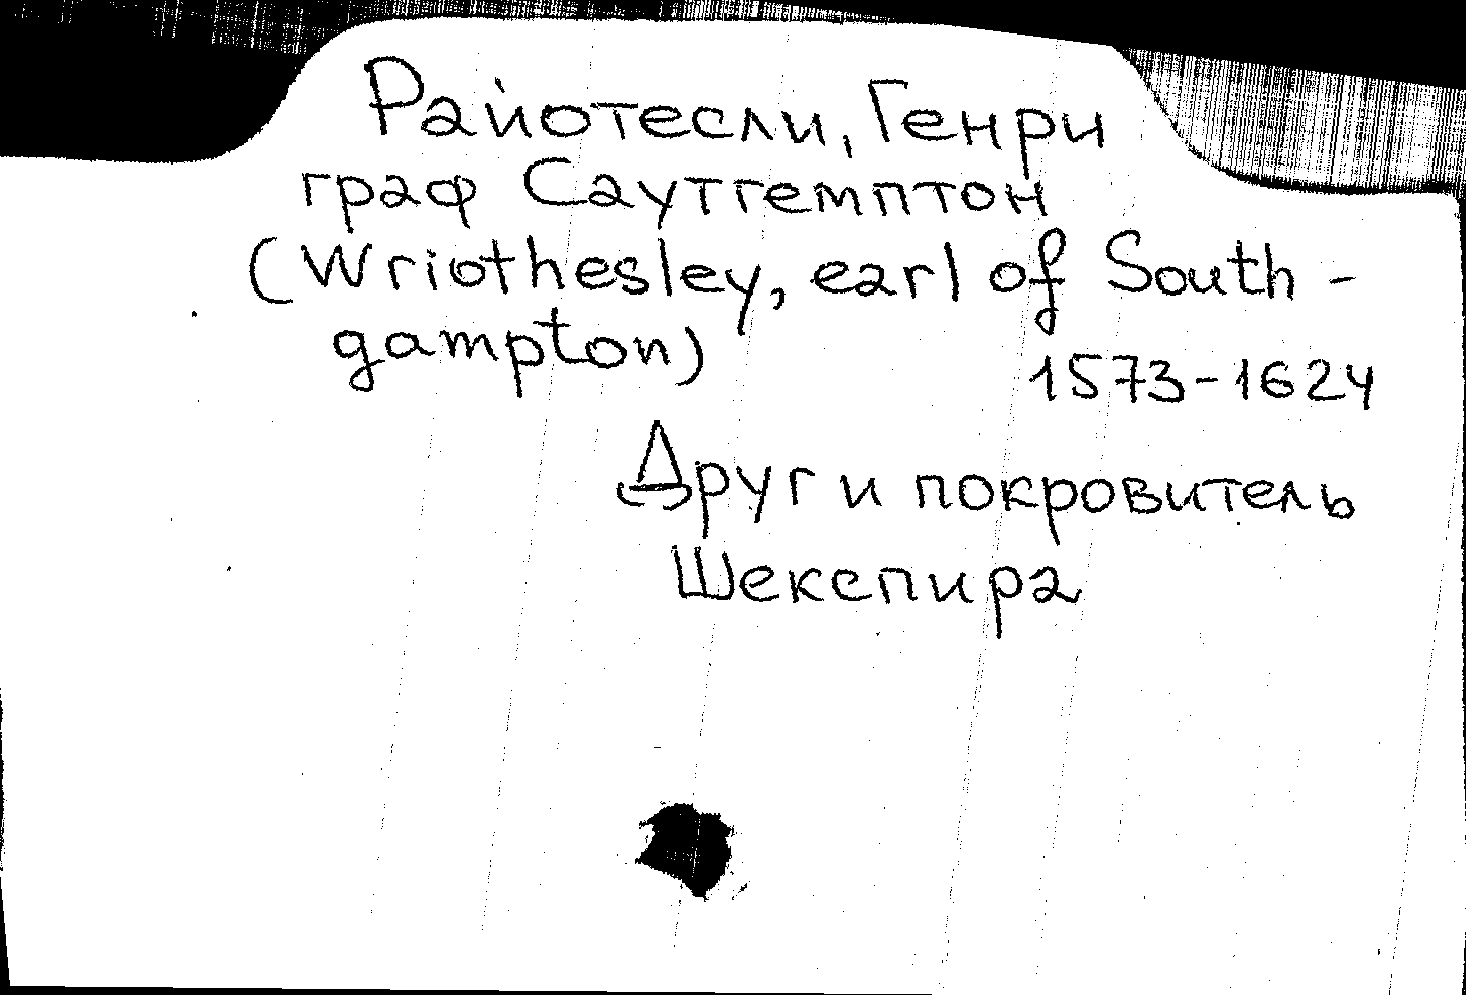 Райотесли, Генри
граф Саутгемптон
(Wriothesley, earl of South-
gampton)
1573-1624
Друг и покровитель
Шекспира